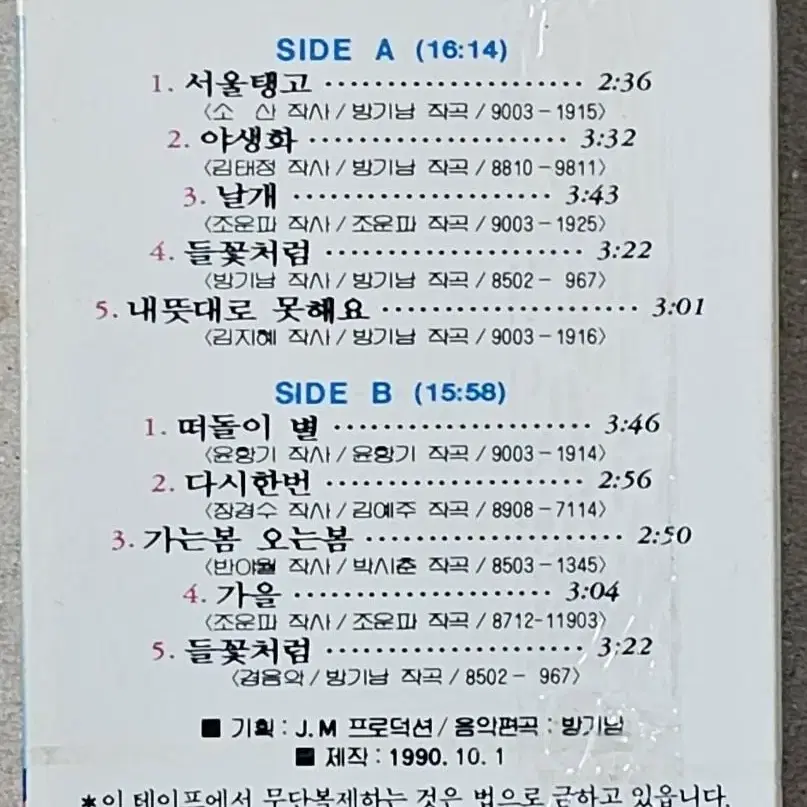 SIDE A (16:14)
1. 서울탱고 ····················· 2:36
〈소 산 작사/방기남 작곡/9003-1915〉
2. 야생화 ····················· 3:32
〈김태정 작사/방기남 작곡/8810-9811〉
3. 날개 ····················· 3:43
〈조운파 작사/조운파 작곡/9003-1925〉
4. 들꽃처럼 ····················· 3:22
〈방기남 작사/방기남 작곡/8502- 967〉
5. 내뜻대로 못해요 ····················· 3:01
〈김지혜 작사/방기남 작곡/9003-1916〉
SIDE B (15:58)
1. 떠돌이 별 ····················· 3:46
〈윤항기 작사/윤항기 작곡/9003-1914〉
2. 다시한번 ····················· 2:56
〈장경수 작사/김예주 작곡/8908-7114〉
3. 가는봄 오는봄 ····················· 2:50
〈반야월 작사/박시춘 작곡/8503-1345〉
4. 가을 ····················· 3:04
〈조운파 작사/조운파 작곡/8712-11903〉
5. 들꽃처럼 ····················· 3:22
〈경음악/방기남 작곡/8502- 967〉
■ 기획 : J.M 프로덕션/음악편곡 : 방기남
■ 제작 : 1990. 10. 1
*이 테이프에서 무단복제하는 것은 법으로 금하고 있읍니다